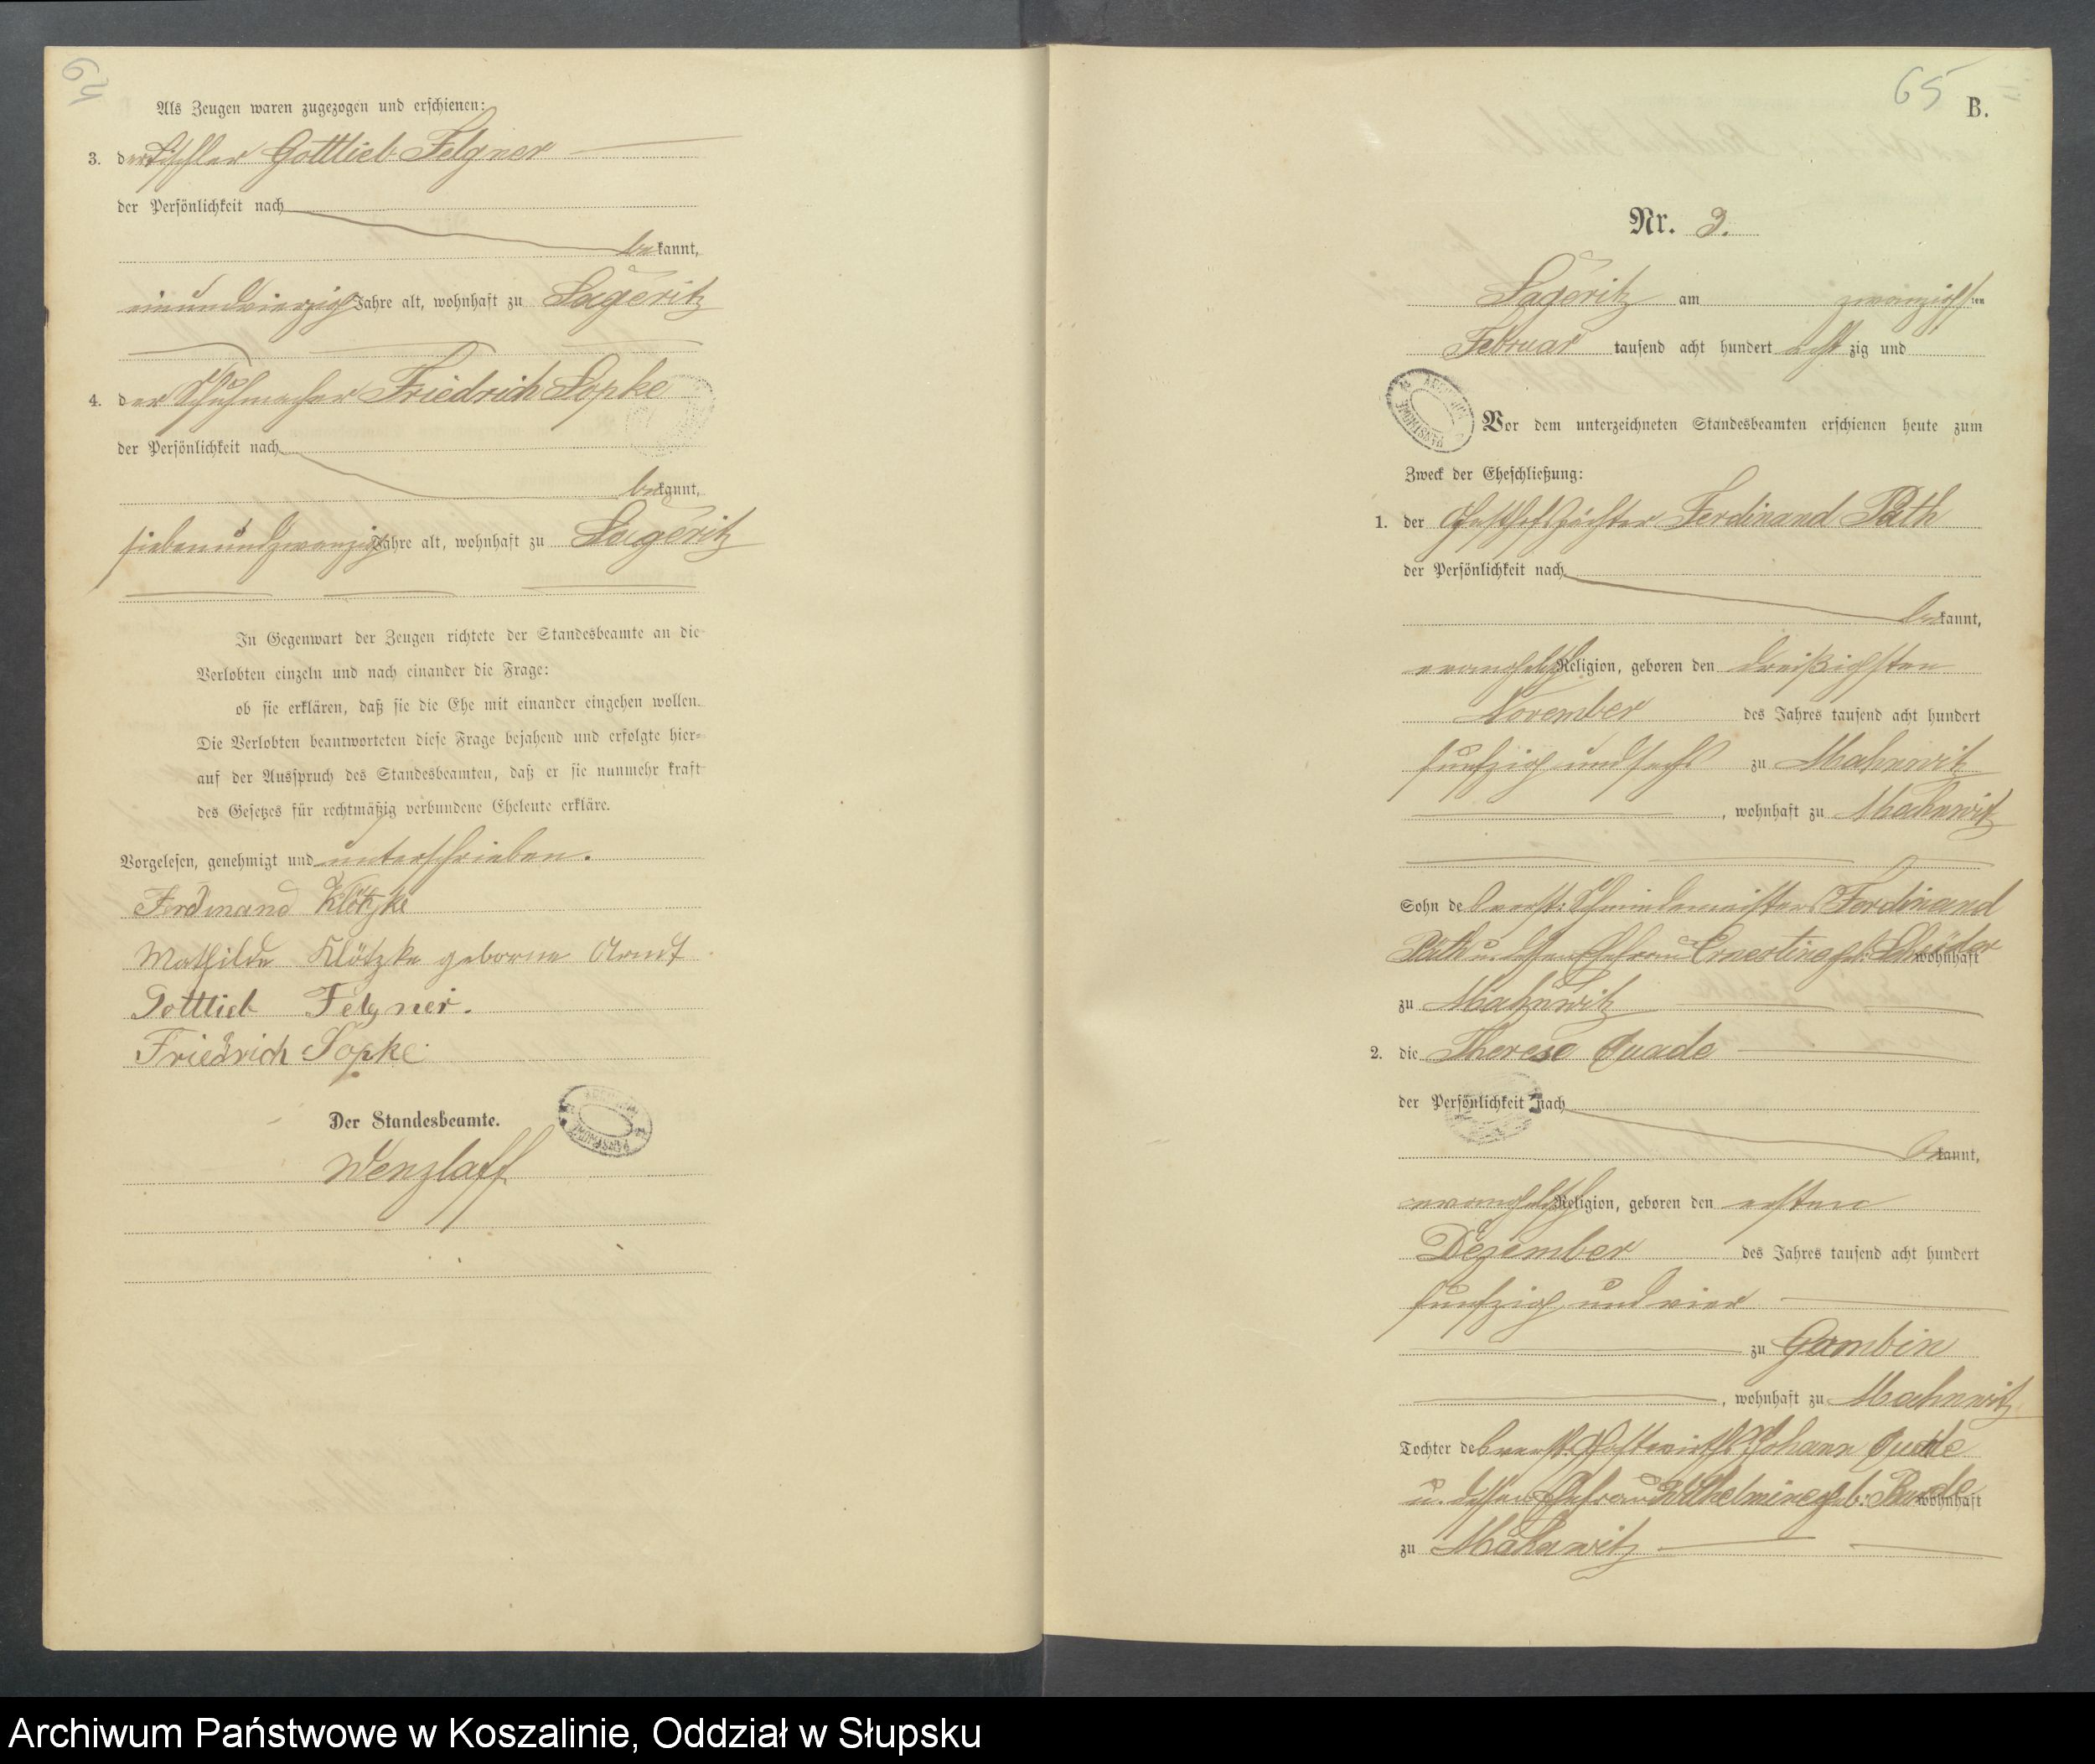 64
Als Zeugen waren zugezogen und erschienen:
3. der Tischler Gottlieb Felgner
der Persönlichkeit nach
bekannt,
einundvierzig Jahre alt, wohnhaft zu Sageritz
4. der Schuhmacher Friedrich Sopke
der Persönlichkeit nach
bekannt,
siebenundzwanzig Jahre alt, wohnhaft zu Sageritz
In Gegenwart der Zeugen richtete der Standesbeamte an die
Verlobten einzeln und nach einander die Frage:
ob sie erklären, daß sie die Ehe mit einander eingehen wollen.
Die Verlobten beantworteten diese Frage bejahend und erfolgte hier-
auf der Ausspruch des Standesbeamten, daß er sie nunmehr kraft
des Gesetzes für rechtmäßig verbundene Eheleute erkläre.
Vorgelesen, genehmigt und unterschrieben.
Ferdinand Klötzke
Mathilde Klötzke geborne Arndt
Gottlieb Felgner.
Friedrich Sopke.
Der Standesbeamte.
Wenzlaff
65
B.
Nr. 3.
Sageritz am zwanzigsten
Februar tausend acht hundert achtzig und
Vor dem unterzeichneten Standesbeamten erschienen heute zum
Zweck der Eheschließung:
1. der Gasthofspächter Ferdinand Päth
der Persönlichkeit nach
bekannt,
evangelisch Religion, geboren den dreißigsten
November des Jahres tausend acht hundert
funfzig und sechs zu Mahnwitz
, wohnhaft zu Mahnwitz
Sohn des verst: Schmiedemeisters Ferdinand
Päth u. dessen Ehefrau Ernestine geb: wohnhaft
zu Mahnwitz
2. die Therese Quade
der Persönlichkeit nach
bekannt,
evangelisch Religion, geboren den ersten
Dezember des Jahres tausend acht hundert
funfzig und vier
zu Gambin
, wohnhaft zu Mahnwitz
Tochter des verst: Gastwirths Johann Quade
u. dessen Ehefrau Wilhelmine geb: wohnhaft
zu Mahnwitz
Archiwum Państwowe w Koszalinie, Oddział w Słupsku